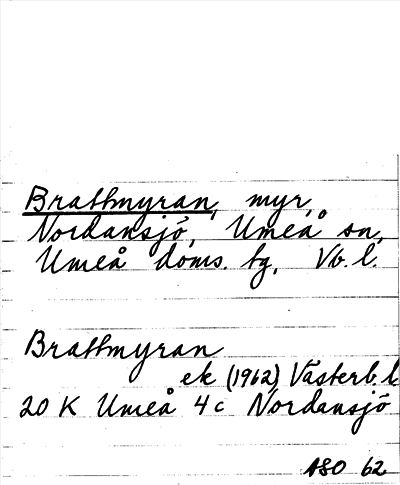 Brattmyran, myr,
Nordansjö, Umeå sn,
Umeå doms. tg, Vb. l.
Brattmyran
ek (1962) Västerb. l
20 K Umeå 4c Nordansjö
ASO 62